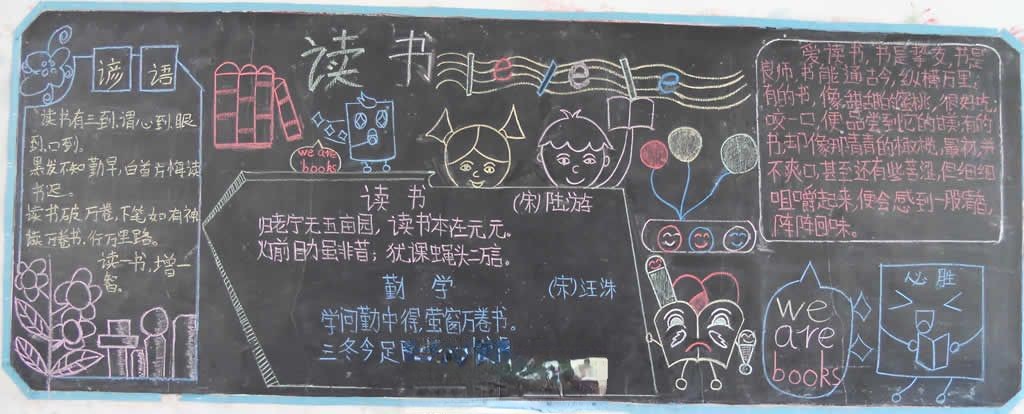 读书
e
e
e
谚语
读书有三到，谓心到，眼
到，口到。
黑发不知勤早，白首方悔读
书迟。
读书破万卷，下笔如有神
读万卷书，行万里路。
读一书，增一
智。
we are
books
读书
(宋)陆游
归老宁无五亩园，读书本在元元。
灯前目力虽非昔；犹课蝇头二万言。
勤学
(宋)汪洙
学问勤中得，萤窗万卷书。
三冬今足
爱读书，书是挚友，书是
良师，书能通古今，纵横万里；
有的书，像甜甜的蜜桃，很好吃，
咬一口，便品尝到它的甜美；有的
书，却像那青青的橄榄，最初并
不爽口，甚至还有些苦涩，但细细
咀嚼起来，便会感到一股清香，
阵阵回味。
we
are
books
必胜